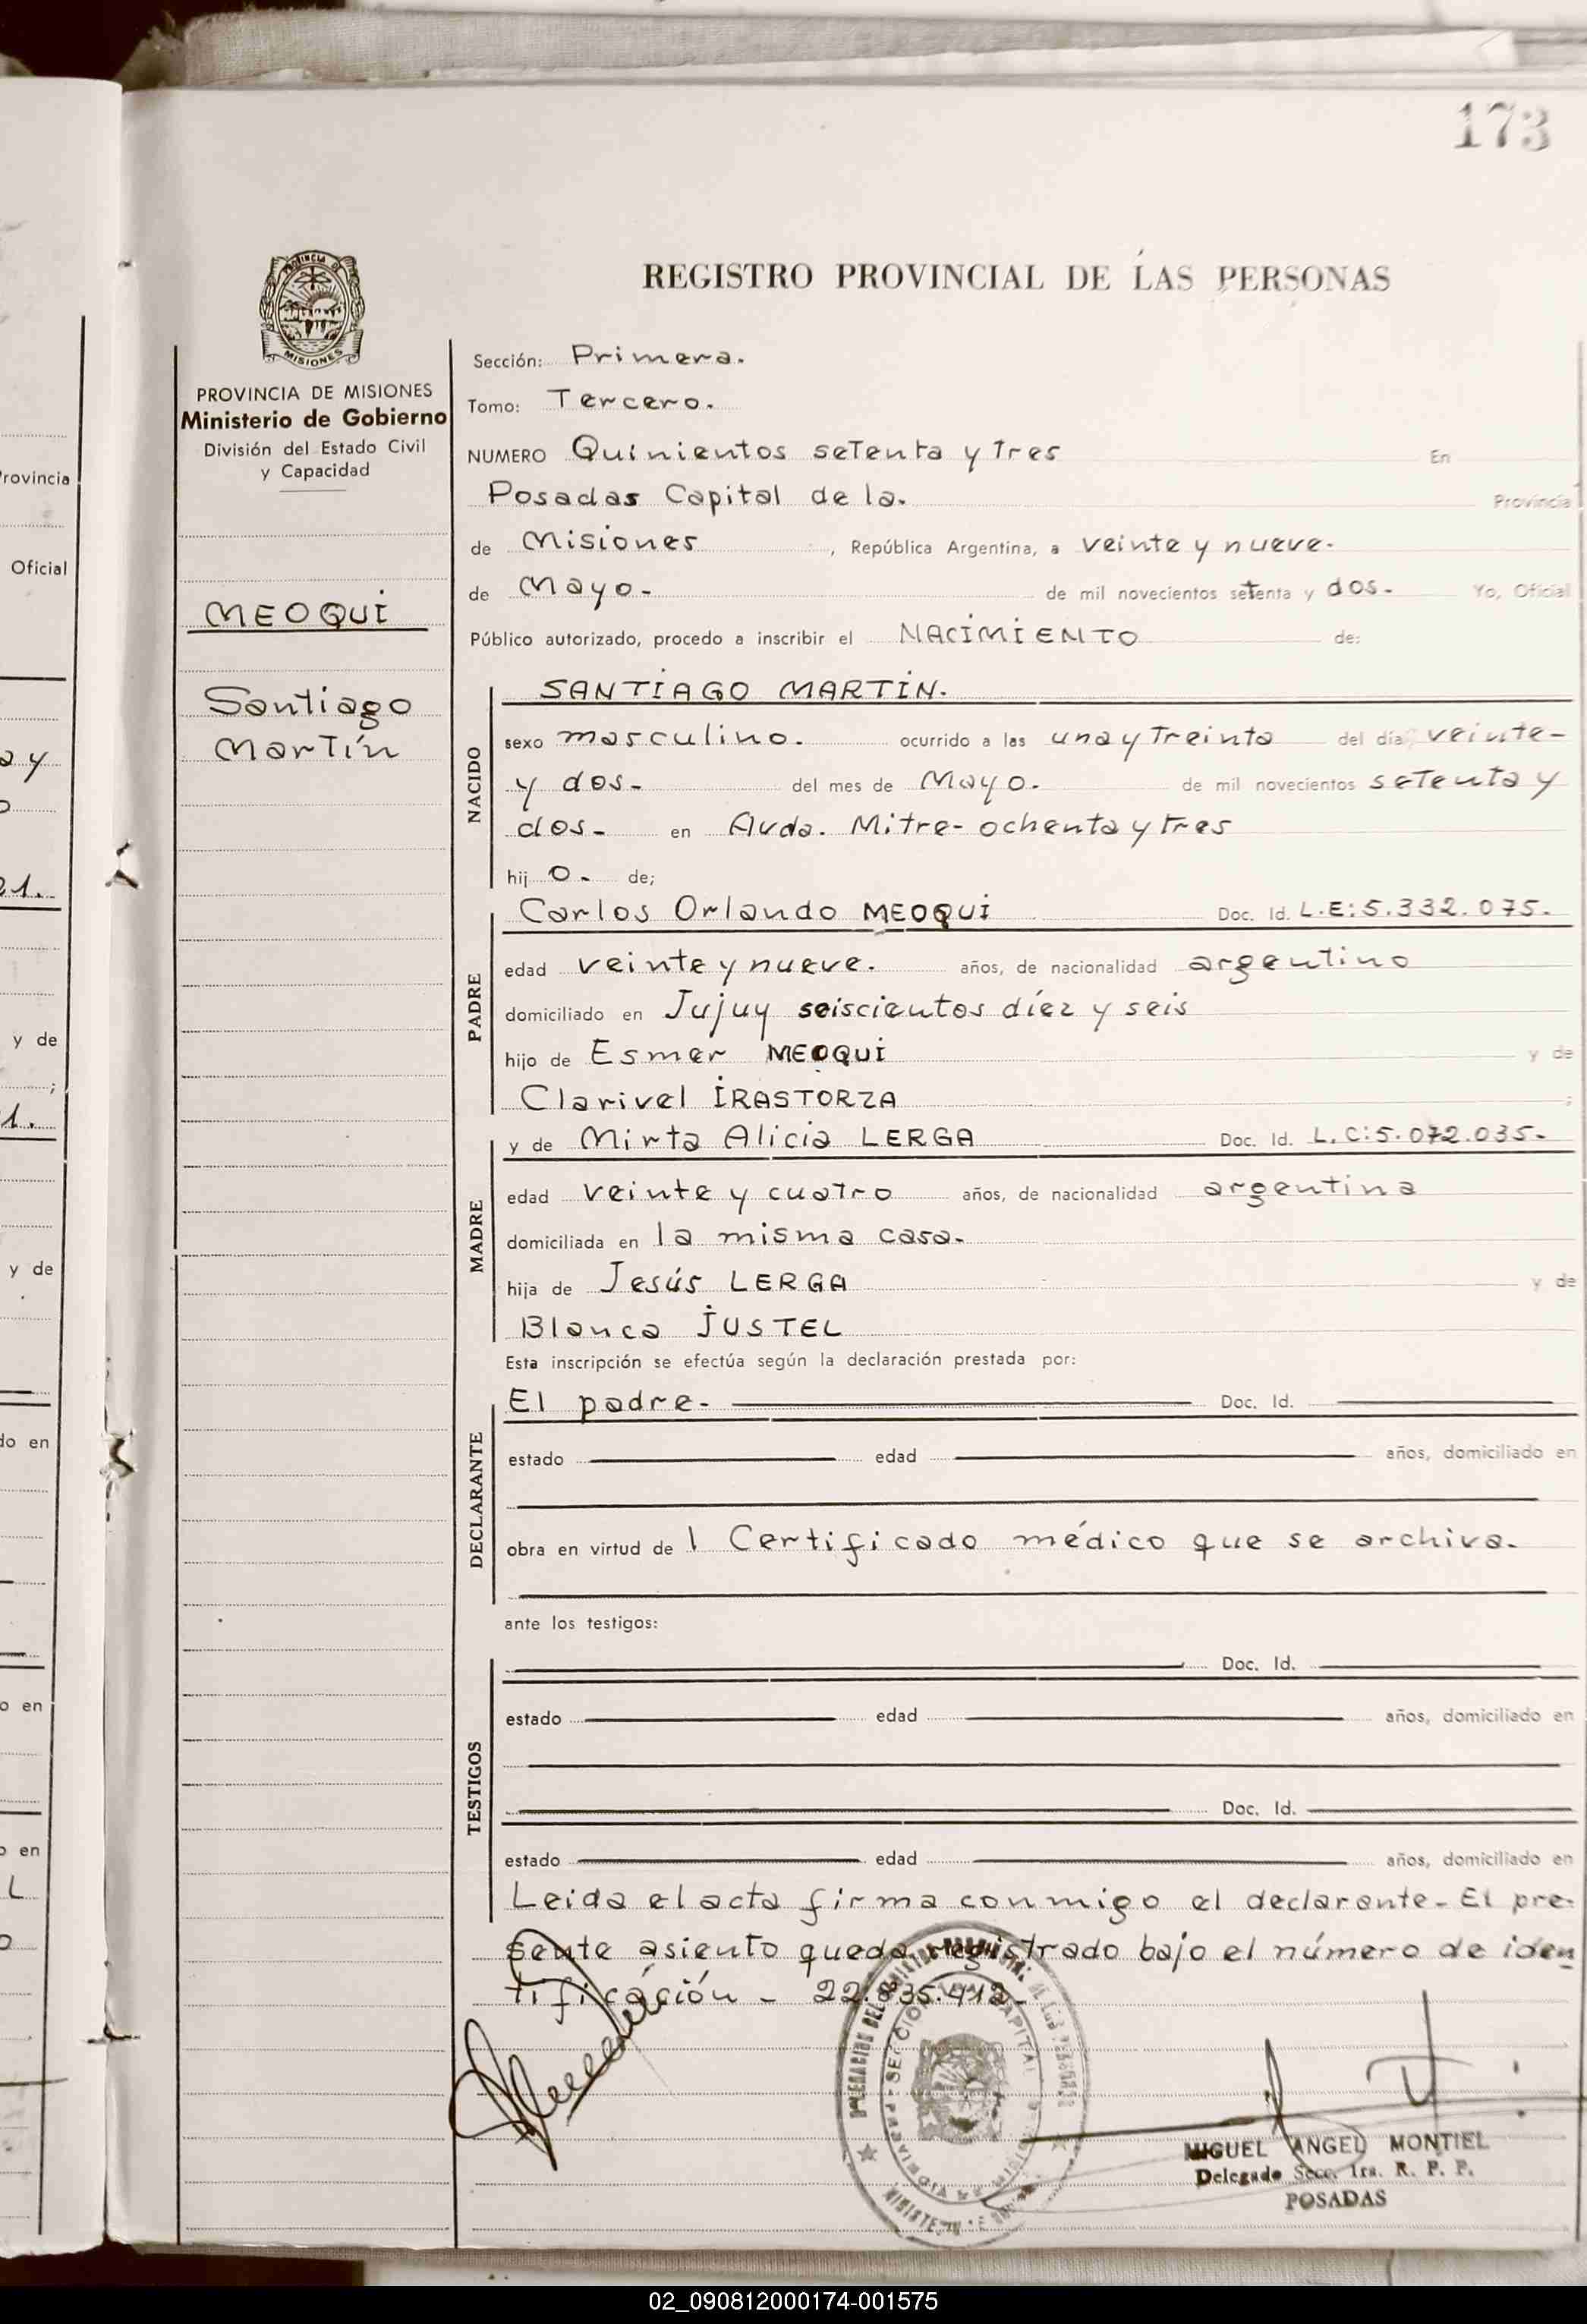 173
PROVINCIA DE
MISIONES
REGISTRO PROVINCIAL DE LAS PERSONAS
PROVINCIA DE MISIONES
Ministerio de Gobierno
División del Estado Civil
y Capacidad
MEOQUI
Santiago
Martín
Sección: Primera.
Tomo: Tercero.
NUMERO Quinientos setenta y tres En
Posadas Capital de la. Provincia
de Misiones , República Argentina, a veinte y nueve.
de Mayo- de mil novecientos setenta y dos- Yo, Oficial
Público autorizado, procedo a inscribir el NACIMIENTO de:
NACIDO
SANTIAGO MARTIN.
sexo masculino. ocurrido a las una y treinta del día veinte-
y dos- del mes de Mayo. de mil novecientos setenta y
dos- en Avda. Mitre- ochenta y tres
hij o- de;
PADRE
Carlos Orlando MEOQUI Doc. Id. L.E:5.332.075.
edad veinte y nueve. años, de nacionalidad argentino
domiciliado en Jujuy seiscientos díez y seis
hijo de Esmer MEOQUI y de
Clarivel IRASTORZA ;
MADRE
y de Mirta Alicia LERGA Doc. Id. L.C:5.072.035-
edad veinte y cuatro años, de nacionalidad argentina
domiciliada en la misma casa-
hija de Jesús LERGA y de
Blanca JUSTEL
Esta inscripción se efectúa según la declaración prestada por:
DECLARANTE
El padre- Doc. Id.
estado edad años, domiciliado en
obra en virtud de l Certificado médico que se archiva.
ante los testigos:
TESTIGOS
Doc. Id.
estado edad años, domiciliado en
Doc. Id.
estado edad años, domiciliado en
Leida el acta firma conmigo el declarante- El pre-
sente asiento queda registrado bajo el número de iden
tificación -
MIGUEL ANGEL MONTIEL
Delegado Secc. 1ra. R. P. P.
POSADAS
rovincia
Oficial
y de
y de
do en
o en
o en
02_090812000174-001575